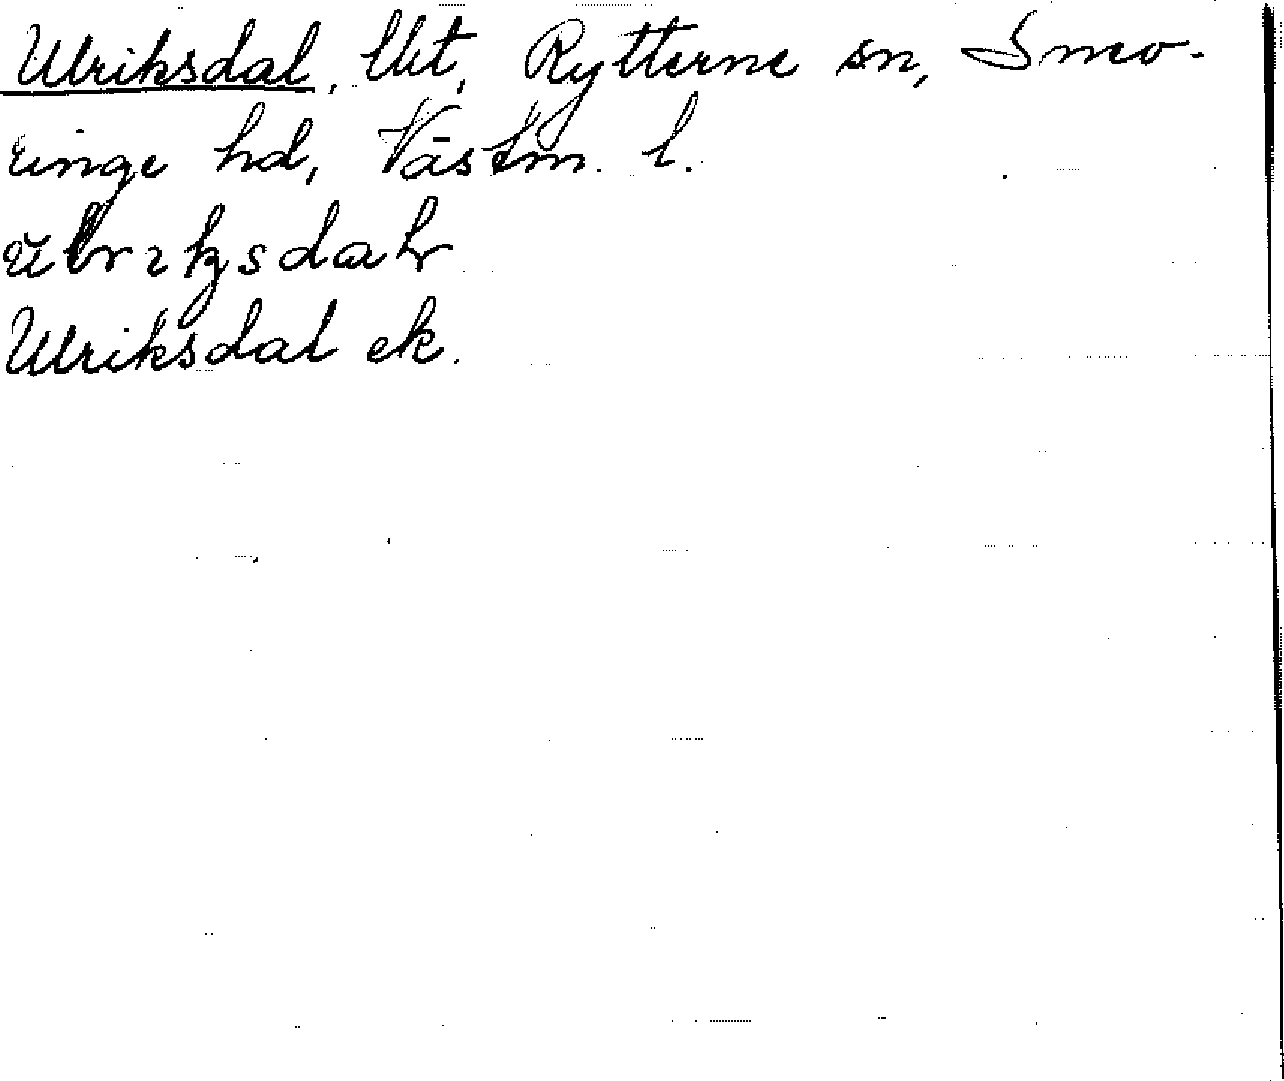 Ulriksdal, lht, Rytterne sn, Snev-
ringe hd, Västm. l.
Ulriksdal ek.